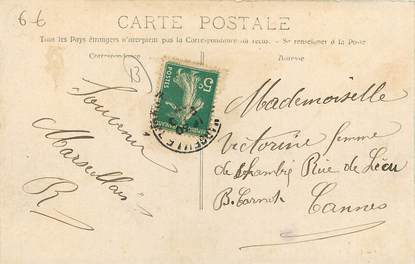 6-6
CARTE POSTALE
Tous les Pays étrangers n'acceptent pas la Correspondance au recto. - Se renseigner à la Poste
Correspondance
Adresse
B
5c
POSTES
MARSEILLE
Souvenir
Marseillais
R
Mademoiselle
Victorine femme
de chambre Rue de
B. Carnot
Cannes